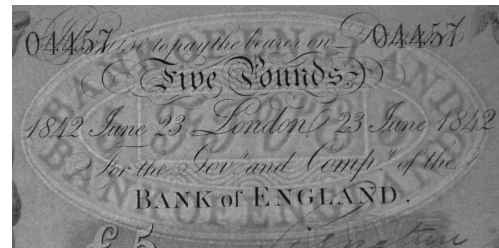 04457 Promise to pay the bearer on D 04457
Five Pounds
1842 June 23 London 23 June 1842
For the Gov.r and Comp.a of the
BANK of ENGLAND.
£5